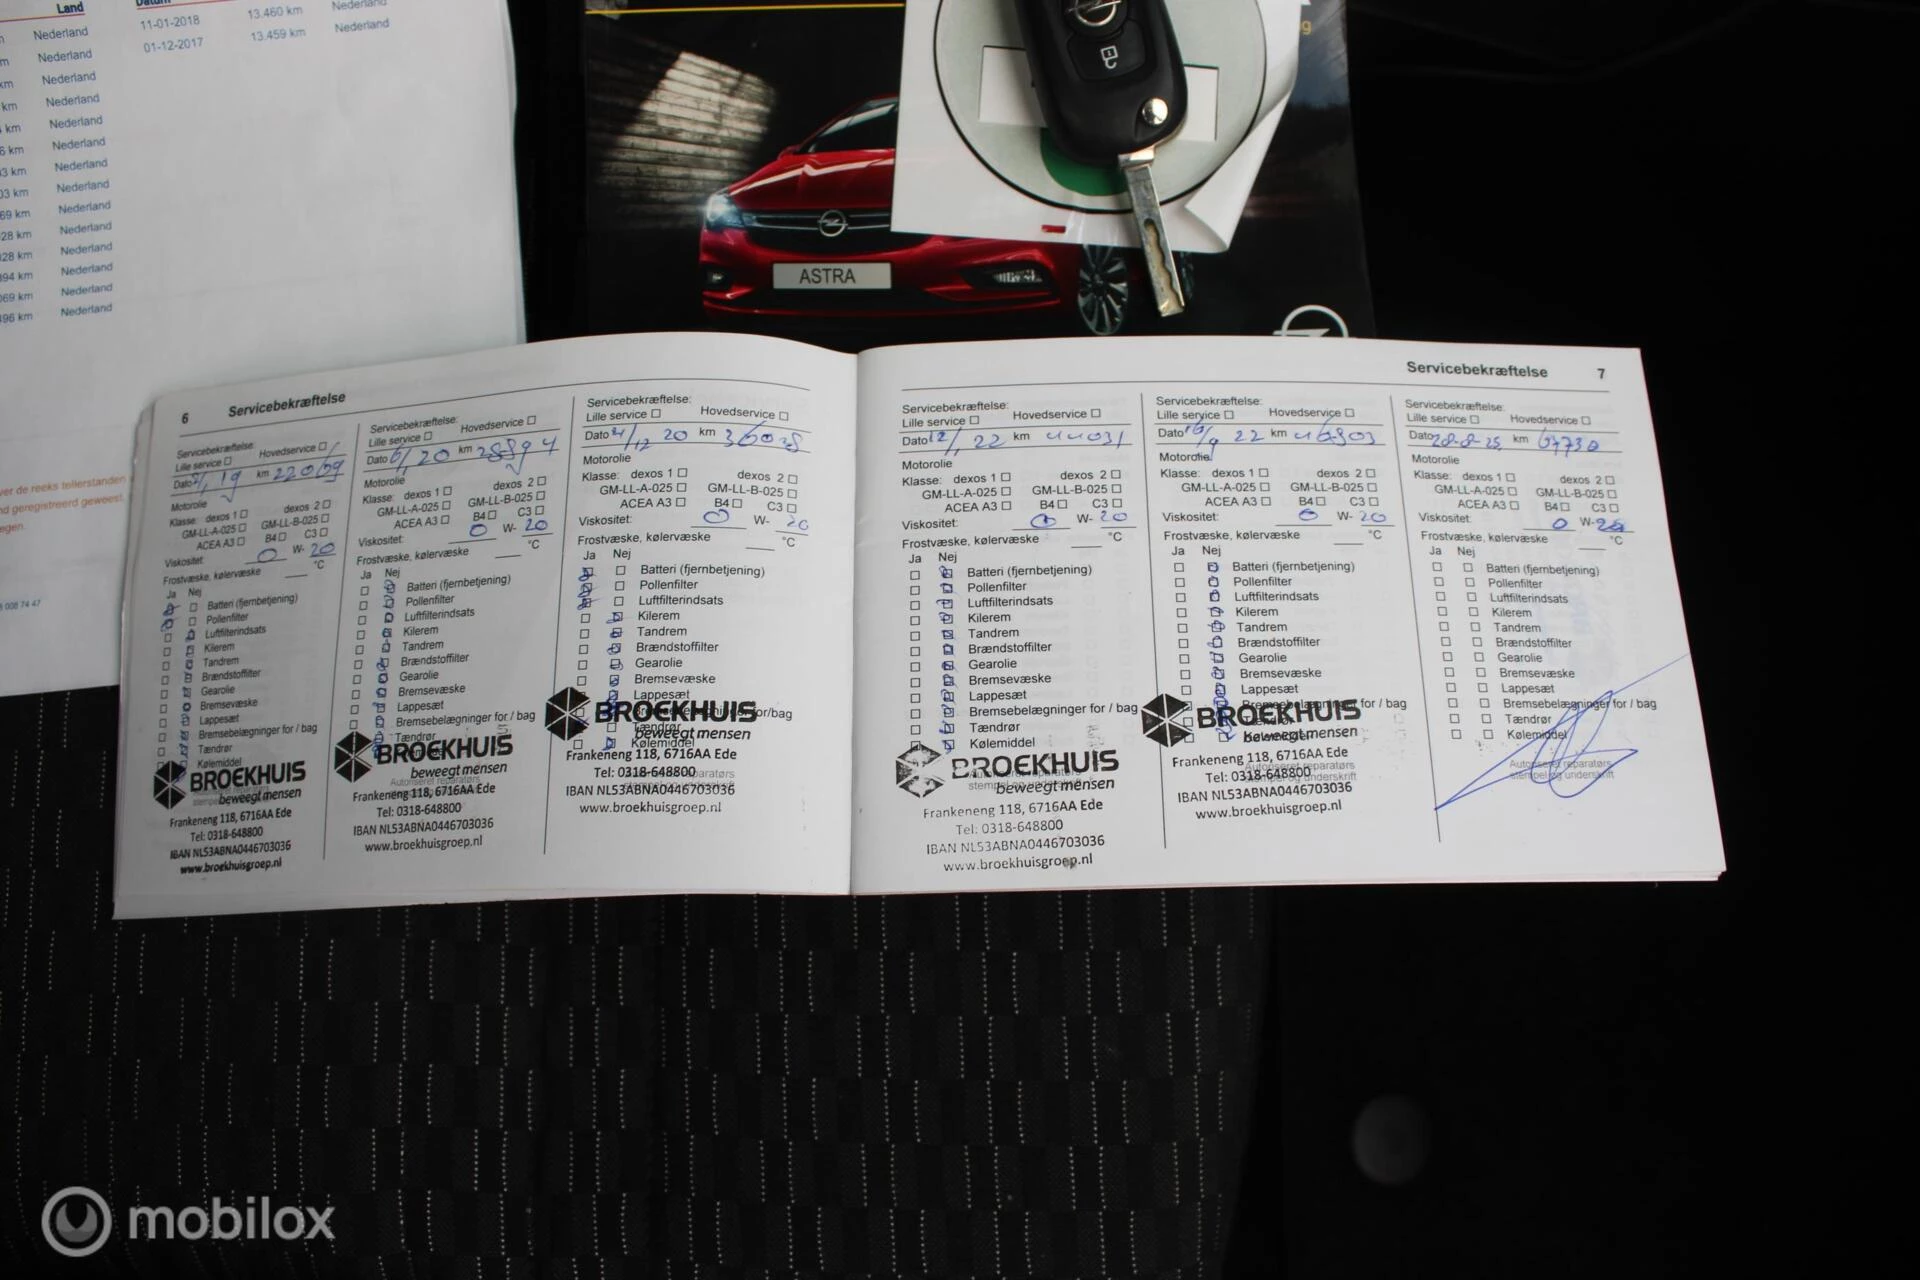 Land
Nederland
Nederland
km Nederland
km Nederland
km Nederland
6 km Nederland
3 km Nederland
03 km Nederland
69 km Nederland
28 km Nederland
028 km Nederland
894 km Nederland
069 km Nederland
496 km Nederland
Datum
11-01-2018 13.460 km Nederland
01-12-2017 13.459 km Nederland
ver de reeks tellerstanden
nd geregistreerd geweest.
egen.
008 74 47
ASTRA
6 Servicebekræftelse
Servicebekræftelse:
Lille service Hovedservice
Dato km 22069
Motorolie
Klasse: dexos 1 dexos 2
GM-LL-A-025 GM-LL-B-025
ACEA A3 B4 C3
Viskositet: 0 W- 20
Frostvæske, kølervæske °C
Ja Nej
Batteri (fjernbetjening)
Pollenfilter
Luftfilterindsats
Kilerem
Tandrem
Brændstoffilter
Gearolie
Bremsevæske
Lappesæt
Bremsebelægninger for / bag
Tændrør
Kølemiddel
BROEKHUIS
beweegt mensen
Frankeneng 118, 6716AA Ede
Tel: 0318-648800
IBAN NL53ABNA0446703036
www.broekhuisgroep.nl
Servicebekræftelse:
Lille service Hovedservice
Dato km 28894
Motorolie
Klasse: dexos 1 dexos 2
GM-LL-A-025 GM-LL-B-025
ACEA A3 B4 C3
Viskositet: 0 W- 20
Frostvæske, kølervæske °C
Ja Nej
Batteri (fjernbetjening)
Pollenfilter
Luftfilterindsats
Kilerem
Tandrem
Brændstoffilter
Gearolie
Bremsevæske
Lappesæt
Bremsebelægninger for / bag
Tændrør
BROEKHUIS
beweegt mensen
Frankeneng 118, 6716AA Ede
Tel: 0318-648800
IBAN NL53ABNA0446703036
www.broekhuisgroep.nl
Servicebekræftelse:
Lille service Hovedservice
Dato 12 20 km 36028
Motorolie
Klasse: dexos 1 dexos 2
GM-LL-A-025 GM-LL-B-025
ACEA A3 B4 C3
Viskositet: 0 W- 20
Frostvæske, kølervæske °C
Ja Nej
Batteri (fjernbetjening)
Pollenfilter
Luftfilterindsats
Kilerem
Tandrem
Brændstoffilter
Gearolie
Bremsevæske
Lappesæt
Bremsebelægninger for/bag
Tændrør
Kølemiddel
BROEKHUIS
beweegt mensen
Frankeneng 118, 6716AA Ede
Tel: 0318-648800
IBAN NL53ABNA0446703036
www.broekhuisgroep.nl
Servicebekræftelse 7
Servicebekræftelse:
Lille service Hovedservice
Dato 12/1 22 km 44031
Motorolie
Klasse: dexos 1 dexos 2
GM-LL-A-025 GM-LL-B-025
ACEA A3 B4 C3
Viskositet: 0 W- 20
Frostvæske, kølervæske °C
Ja Nej
Batteri (fjernbetjening)
Pollenfilter
Luftfilterindsats
Kilerem
Tandrem
Brændstoffilter
Gearolie
Bremsevæske
Lappesæt
Bremsebelægninger for / bag
Tændrør
Kølemiddel
BROEKHUIS
beweegt mensen
Frankeneng 118, 6716AA Ede
Tel: 0318-648800
IBAN NL53ABNA0446703036
www.broekhuisgroep.nl
Servicebekræftelse:
Lille service Hovedservice
Dato 16/9 22 km 46303
Motorolie
Klasse: dexos 1 dexos 2
GM-LL-A-025 GM-LL-B-025
ACEA A3 B4 C3
Viskositet: 0 W- 20
Frostvæske, kølervæske °C
Ja Nej
Batteri (fjernbetjening)
Pollenfilter
Luftfilterindsats
Kilerem
Tandrem
Brændstoffilter
Gearolie
Bremsevæske
Lappesæt
Bremsebelægninger for / bag
Tændrør
Kølemiddel
BROEKHUIS
beweegt mensen
Frankeneng 118, 6716AA Ede
Tel: 0318-648800
IBAN NL53ABNA0446703036
www.broekhuisgroep.nl
Servicebekræftelse:
Lille service Hovedservice
Dato 28-8-25 km 67730
Motorolie
Klasse: dexos 1 dexos 2
GM-LL-A-025 GM-LL-B-025
ACEA A3 B4 C3
Viskositet: 0 W-
Frostvæske, kølervæske °C
Ja Nej
Batteri (fjernbetjening)
Pollenfilter
Luftfilterindsats
Kilerem
Tandrem
Brændstoffilter
Gearolie
Bremsevæske
Lappesæt
Bremsebelægninger for / bag
Tændrør
Kølemiddel
Autoriseret reparatørs
stempel og underskrift
mobilox